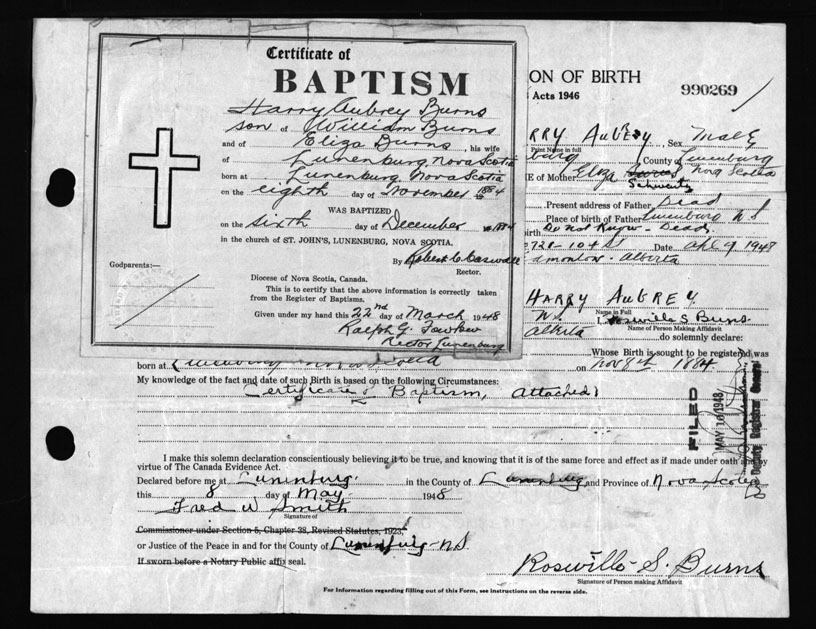 Certificate of
BAPTISM
Harry Aubrey Burns
son of William Burns
and of Eliza Burns, his wife
of Lunenburg, Nova Scotia
born at Lunenburg Nova Scotia
on the eighth day of November 1884
WAS BAPTIZED
on the sixth day of December 1884
in the church of ST. JOHN'S, LUNENBURG, NOVA SCOTIA.
By Robert C. Caswall
Rector.
Godparents:—
Diocese of Nova Scotia, Canada.
This is to certify that the above information is correctly taken
from the Register of Baptisms.
Given under my hand this 22nd day of March 1948
Ralph G.
Rector Lunenburg
ON OF BIRTH
Acts 1946
990269
RRY AUBREY, Sex MALE
Print Name in full
burg County of Lunenburg
E of Mother Eliza Nova Scotia
Schwartz
Present address of Father, Dead
Place of birth of Father Lunenburg N.S.
irth Do not Know - Dead
Date Apl 9 1948
dmonton - Alberta
HARRY AUBREY
Name in Full
N.S. I, Roswillo S Burns
Alberta Name of Person Making Affidavit
do solemnly declare:
Whose Birth is sought to be registered was
born at Lunenburg Nova Scotia on Nov 8th 1884
My knowledge of the fact and date of such Birth is based on the following Circumstances:
Certificate of Baptism, Attached
FILED
MAY 10 1948
Deputy Registrar General
I make this solemn declaration conscientiously believing it to be true, and knowing that it is of the same force and effect as if made under oath and by
virtue of The Canada Evidence Act.
Declared before me at Lunenburg in the County of Lunenburg and Province of Nova Scotia
this 8 day of May 1948
Fred W Smith
Signature of
Commissioner under Section 5, Chapter 38, Revised Statutes, 1923,
or Justice of the Peace in and for the County of Lunenburg N.S.
If sworn before a Notary Public affix seal.
Roswillo S. Burns
Signature of Person making Affidavit
For Information regarding filling out of this Form, see instructions on the reverse side.